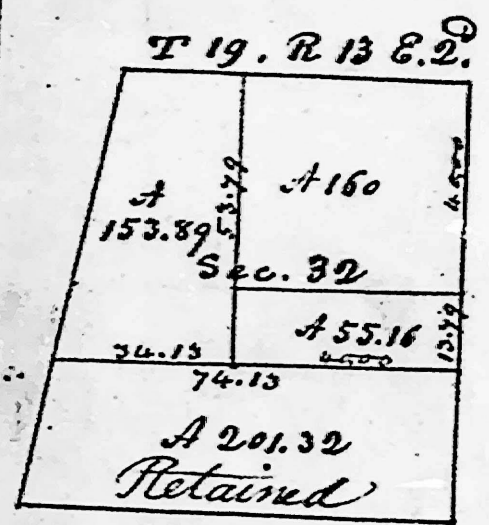 T 19. R 13 E. 2.D
A
153.89
53.79
A 160
4000
Sec. 32
A 55.16
4000
13.79
34.13
74.13
A 201.32
Retained